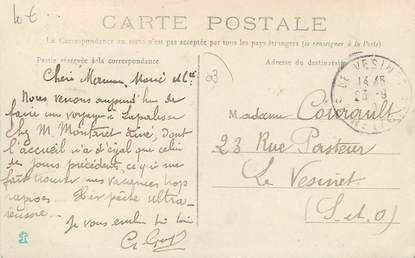 CARTE POSTALE
La Correspondance au recto n'est pas acceptée par tous les pays étrangers (se renseigner à la Poste)
Partie réservée à la correspondance
Adresse du destinataire
03
Chère Maman,
Nous venons aujourd'hui de
faire un voyage à Lapalisse
chez M. Montaret dont
l'accueil n'a d'égal que celui
des jours précédents, ce qui me
fait trouver mes vacances trop
Hier pêche ultra-
Je vous
Madame Courault
23 Rue Pasteur
Le Vesinet
(S-et-O)
LE VESINET
14 45